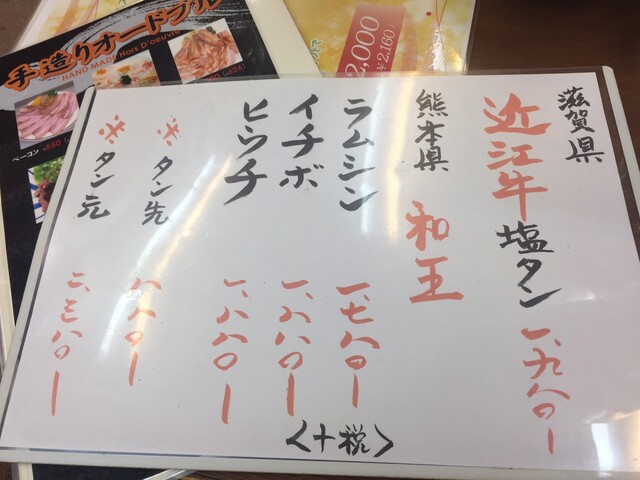 滋賀県
近江牛塩タン 一、九八〇ー
熊本県 和王
ラムシン 一、七八〇ー
イチボ 一、六八〇ー
ヒウチ 一、八八〇ー
※タン先 八八〇ー
※タン元 二、三八〇ー
<十税>
手造りオードブル
HAND MADE Hors D'oeuvre
ベーコン ¥550
2,000
¥2,160)